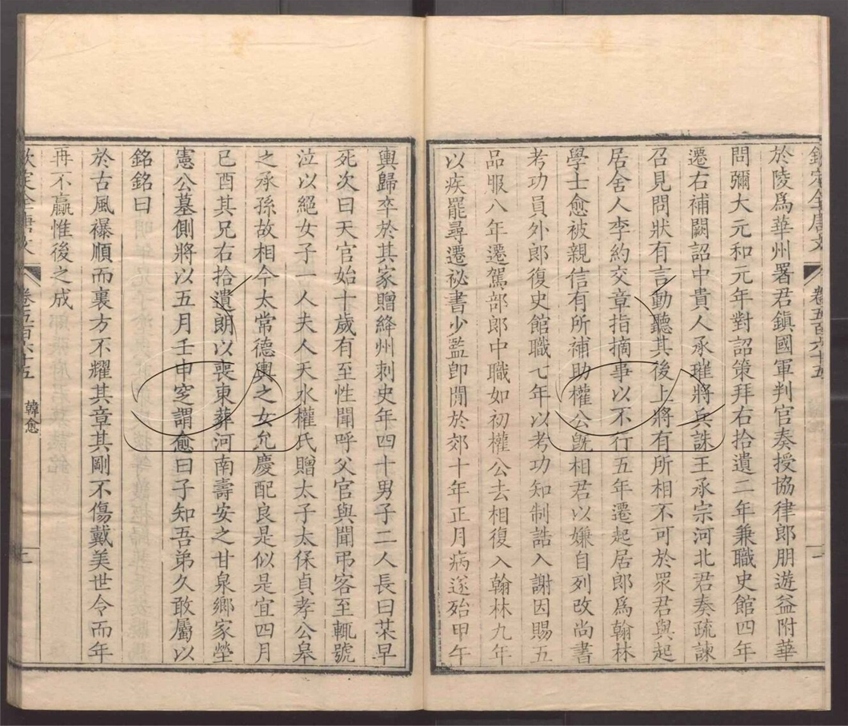 欽定全唐文 卷五百六十五
於陵爲華州署君鎮國軍判官奏授協律郎朋遊益附華
問彌大元和元年對詔策拜右拾遺二年兼職史館四年
遷右補闕詔中貴人承璀將兵誅王承宗河北君奏疏諫
召見問狀有言動聽其後上將有所相不可於衆君與起
居舍人李約交章指摘事以不行五年遷起居郎爲翰林
學士愈被親信有所補助權公旣相君以嫌自列改尚書
考功員外郎復史館職七年以考功知制誥入謝因賜五
品服八年遷駕部郎中職如初權公去相復入翰林九年
以疾罷尋遷祕書少監卽閒於郊十年正月病遂殆甲午
輿歸卒於其家贈絳州刺史年四十男子二人長曰某早
死次曰天官始十歲有至性聞呼父官與聞弔客至輒號
泣以絕女子一人夫人天水權氏贈太子太保貞孝公皋
之承孫故相今太常德輿之女允慶配良是似是宜四月
已酉其兄右拾遺朗以喪東葬河南壽安之甘泉鄉家塋
憲公墓側將以五月壬申窆謂愈曰子知吾弟久敢屬以
銘銘曰
於古風襮順而裏方不耀其章其剛不傷戴美世令而年
再不贏惟後之成
欽定全唐文 卷五百六十五 韓愈 二